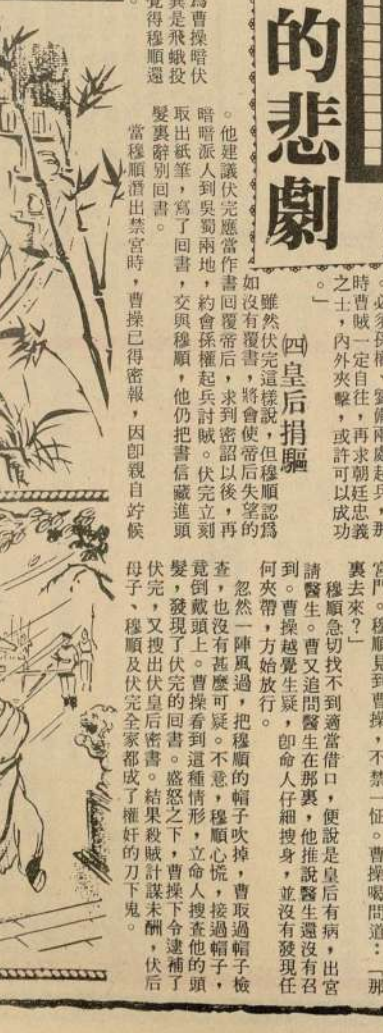 的悲劇
爲曹操暗伏
異是飛蛾投
覺得穆順還
。
。必須孫權、劉備兩處起兵，那
時曹賊一定自往，再求朝廷忠義
之士，內外夾擊，或許可以成功
。」
㈣皇后捐驅
雖然伏完這樣說，但穆順認爲
如沒有覆書，將會使帝后失望的
。他建議伏完應當作書回覆帝后，求到密詔以後，再
暗暗派人到吳蜀兩地，約會孫權起兵討賊。伏完立刻
取出紙筆，寫了回書，交與穆順，他仍把書信藏進頭
髮裏辭別回書。
當穆順潛出禁宮時，曹操已得密報，因卽親自竚候
宮門。穆順見到曹操，不禁一怔。曹操喝問道：「那
裏去來？」
穆順急切找不到適當借口，便說是皇后有病，出宮
請醫生。曹又追問醫生在那裏，他推說醫生還沒有召
到。曹操越覺生疑，卽命人仔細搜身，並沒有發現任
何夾帶，方始放行。
忽然一陣風過，把穆順的帽子吹掉，曹取過帽子檢
查，也沒有甚麼可疑。不意，穆順心慌，接過帽子，
竟倒戴頭上。曹操看到這種情形，立命人搜查他的頭
髮，發現了伏完的回書。盛怒之下，曹操下令逮補了
伏完，又搜出伏皇后密書。結果殺賊計謀未酬，伏后
母子、穆順及伏完全家都成了權奸的刀下鬼。